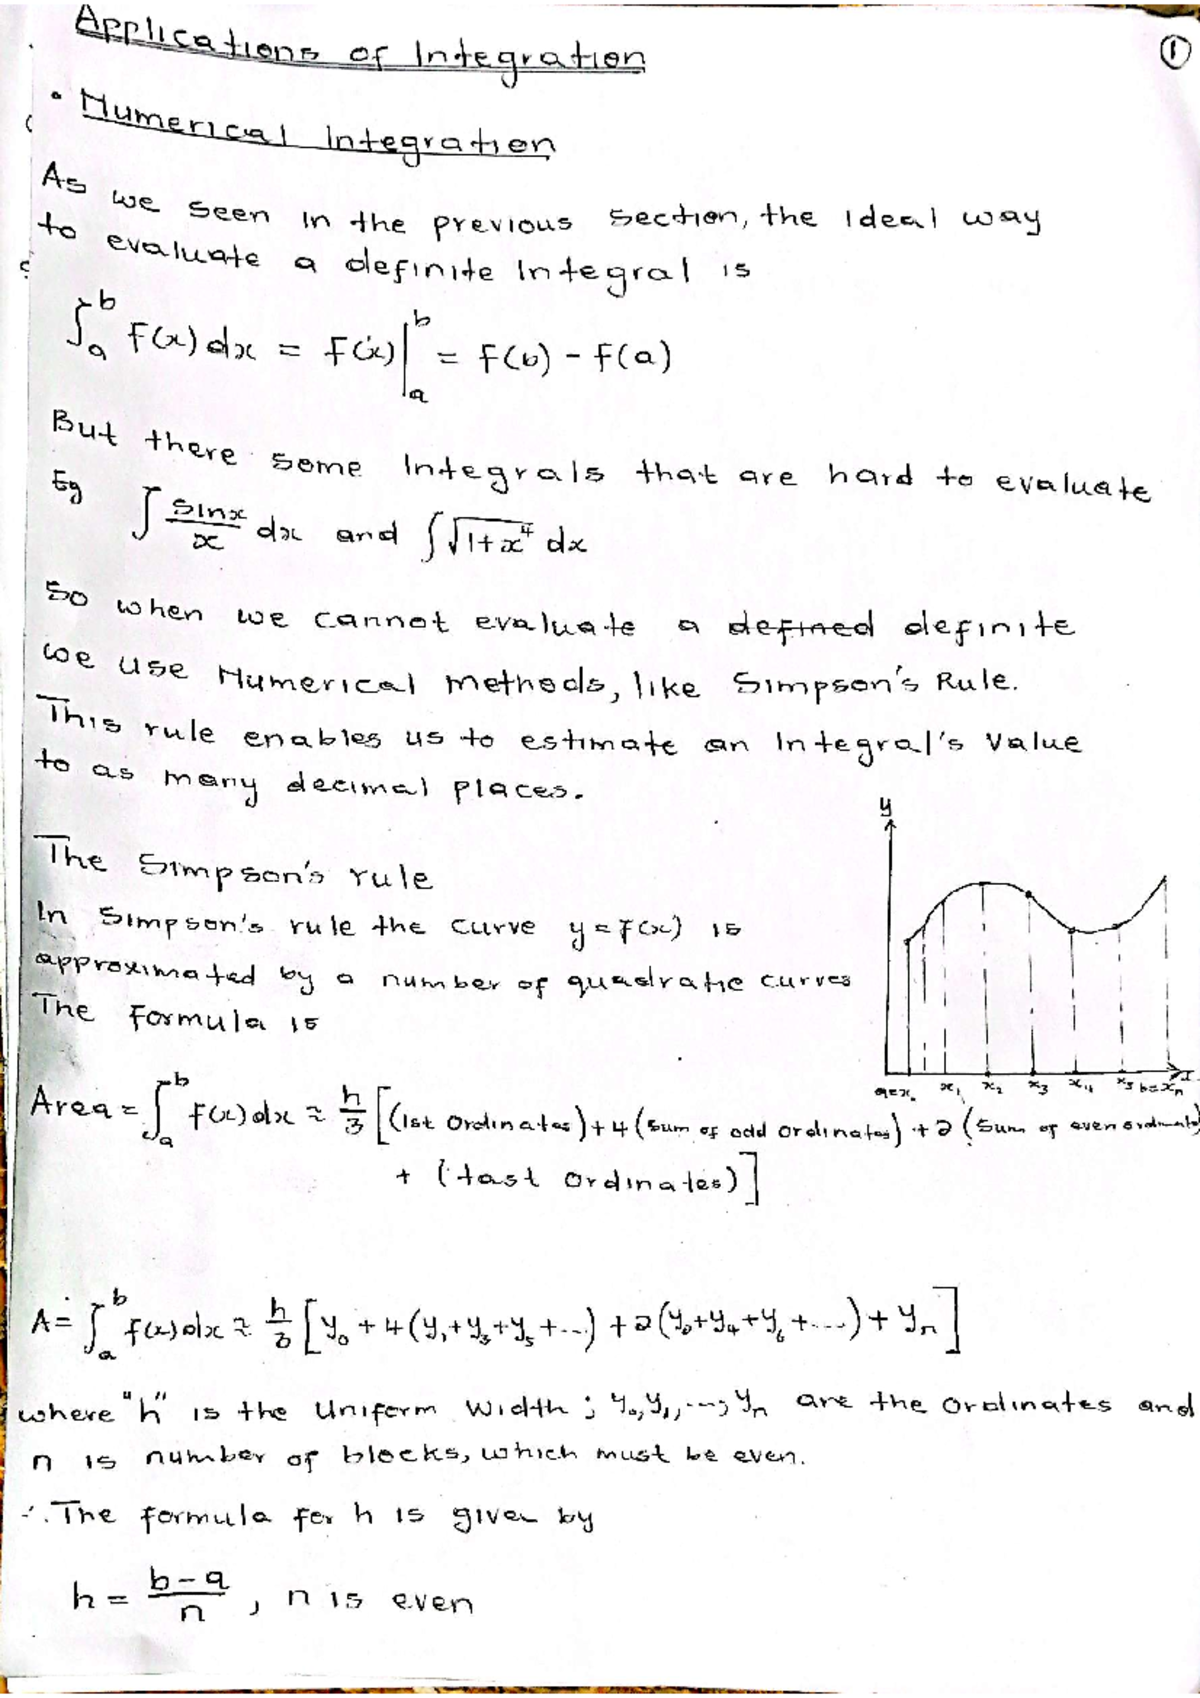 Applications of Integration
①
• Numerical Integration
As we seen in the previous section, the ideal way
to evaluate a definite Integral is
∫_a^b f(x) dx = F(x)|_a^b = F(b) - F(a)
But there some Integrals that are hard to evaluate
Eg ∫ sinx/x dx and ∫√(1+x⁴) dx
So when we cannot evaluate a defined definite
we use Numerical methods, like Simpson's Rule.
This rule enables us to estimate an Integral's value
to as many decimal places.
The Simpson's rule
In Simpson's rule the curve y = f(x) is
approximated by a number of quadratic curves
The Formula is
y
a=x₀ x₁ x₂ x₃ x₄ x₅ b=xₙ x
Area = ∫_a^b f(x) dx ≈ h/3 [(1st Ordinates) + 4 (sum of odd ordinates) + 2 (sum of even ordinates)
+ (last Ordinates)]
A = ∫_a^b f(x) dx ≈ h/3 [y₀ + 4(y₁+y₃+y₅+...) + 2(y₂+y₄+y₆+....) + yₙ]
where "h" is the Uniform Width ; y₀,y₁,...,yₙ are the Ordinates and
n is number of blocks, which must be even.
∴ The formula for h is given by
h = b-a/n , n is even